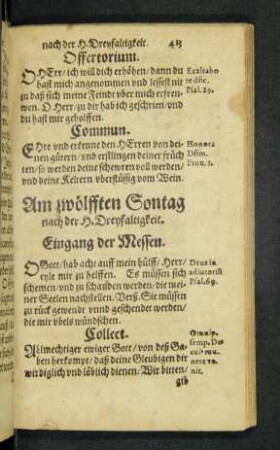 nach der H. Dreyfaltigkeit. 413
Offertorium.
O HErr/ ich will dich erhöhen/ dann du
hast mich angenommen vnd lessest nit
zu daß sich meine Feindt vber mich erfrew-
wen. O Herr/ zu dir hab ich geschrien/ vnd
du hast mir geholffen.
Exaltabo
te dñe.
Psal. 29.
Commun.
EHre vnd erkenne den HErren von dei-
nen gütern/ vnd erstlingen deiner früch
ten/ so werden deine schewren voll werden/
vnd deine Keltern vberflüssig vom Wein.
Honora
Dñm.
Prou. 3.
Am zwölfften Sontag
nach der H. Dreyfaltigkeit.
Eingang der Messen.
O Gott/ hab acht auff mein hülff/ Herr/
eyle mir zu helffen. Es müssen sich
schemen/ vnd zu schanden werden/ die mei-
ner Seelen nachstellen. Verß. Sie müssen
zu rück gewende vnnd geschendet werden/
die mir vbels wündschen.
Deus in
adiutoriũ
Psal. 69.
Collect.
ALlmechtiger ewiger Gott/ von deß Ga-
ben herkompt/ daß deine Gleubigen dir
wirdiglich vnd löblich dienen: Wir bitten/
Omnip.
semp. De
cuius mu
nere ve-
nit.
gib